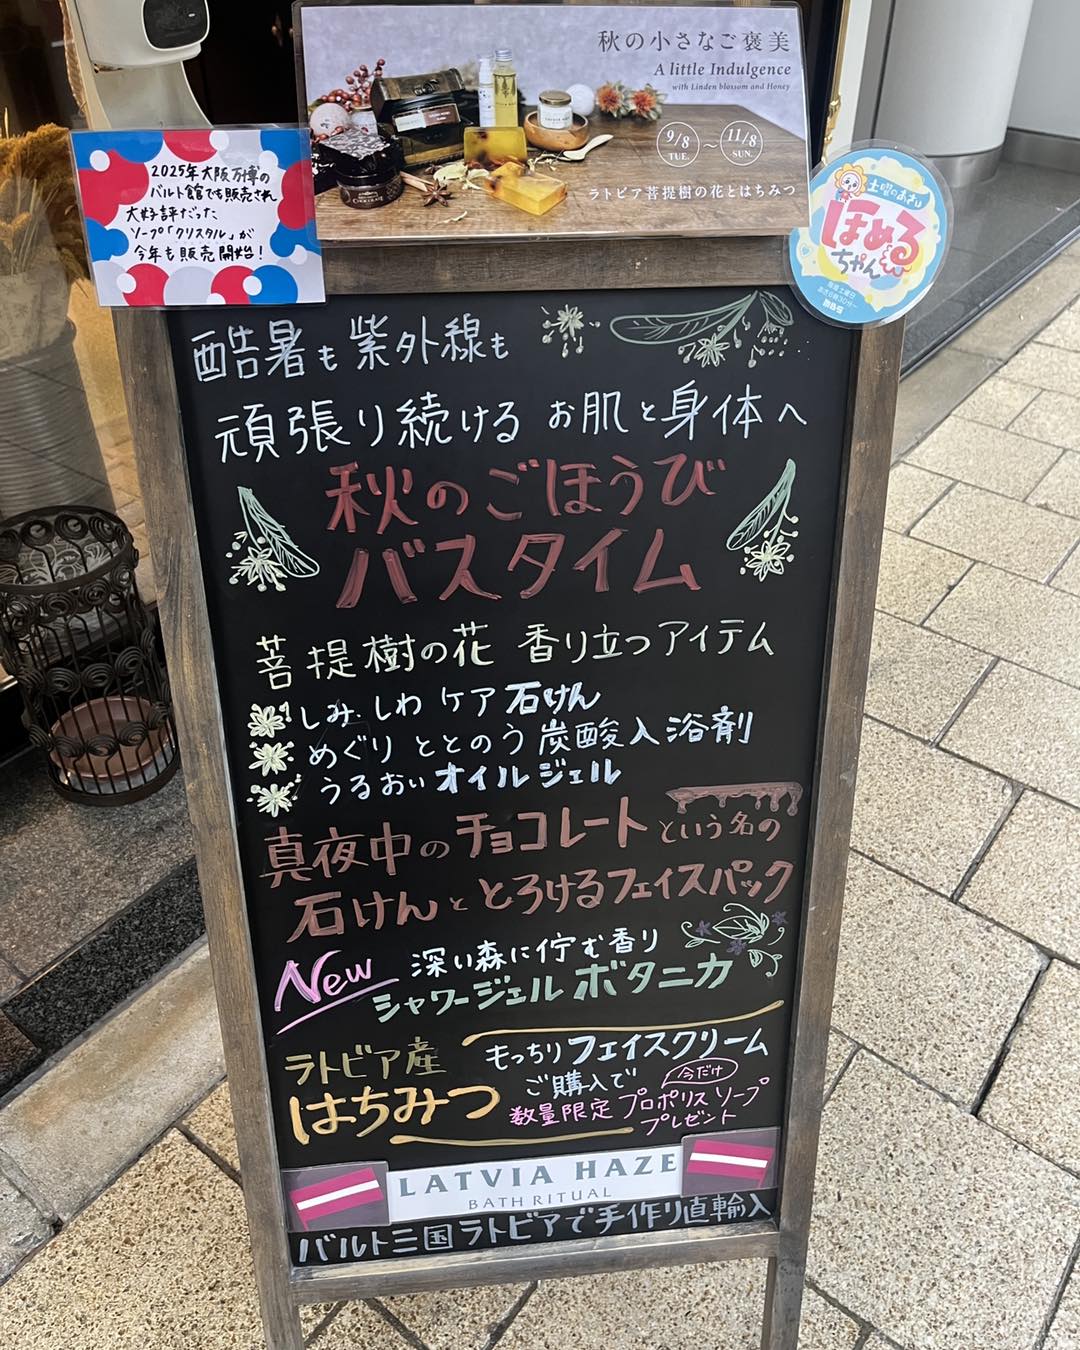 秋の小さなご褒美
A little Indulgence
with Linden blossom and Honey
9/8 TUE. ～ 11/8 SUN.
ラトビア菩提樹の花とはちみつ
2025年大阪万博の
バルト館でも販売され
大好評だった
ソープ「クリスタル」が
今年も販売開始！
土曜のあさは
ほめる
ちゃん
毎週土曜日
あさ6時30分～
MBS
酷暑も紫外線も
頑張り続けるお肌と身体へ
秋のごほうび
バスタイム
菩提樹の花 香り立つアイテム
しみ、しわ ケア石けん
めぐり ととのう 炭酸入浴剤
うるおいオイルジェル
真夜中のチョコレートという名の
石けんととろけるフェイスパック
New 深い森に佇む香り
シャワージェル ボタニカ
ラトビア産
はちみつ
もっちりフェイスクリーム
ご購入で 今だけ
数量限定 プロポリスソープ
プレゼント
LATVIA HAZE
BATH RITUAL
バルト三国ラトビアで手作り直輸入